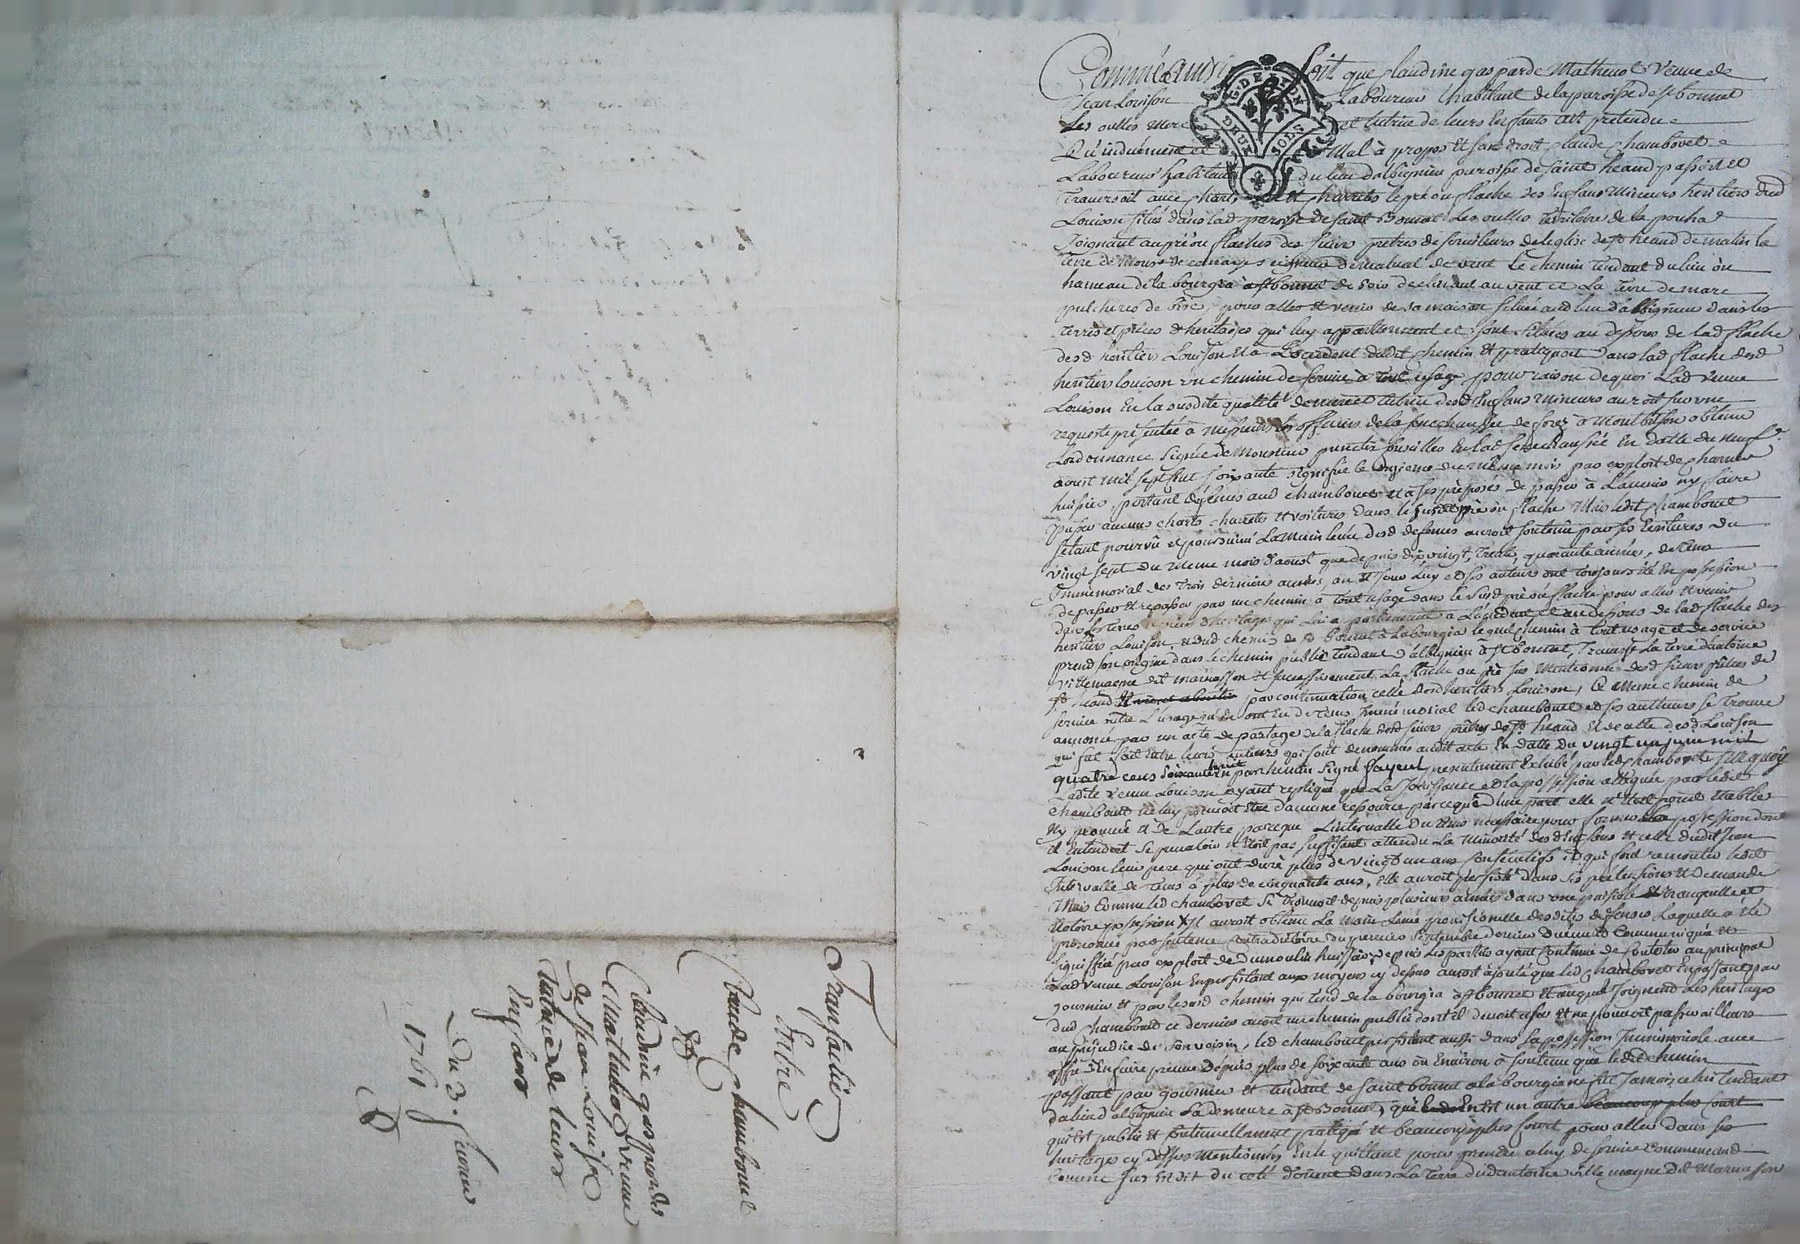 Transaction
Entre
Claude Chambovet
&
Claudine gasparde
Mathulot veuve
de Jean Louison
Tutrice de leurs
Enfans
Du 3. février
1761
Comme ainsy soit que Claudine gasparde Mathevot veuve de
Jean Louison Laboureur habitant de la paroisse de st bonnet
Les oulles mere et tutrice de leurs Enfants ait pretendu
Qu'induement et Mal à propos et sans droit Claude Chambovet
Laboureur habitant du lieu d'albignieu paroisse de saint heand passoit et
Traversoit avec chars et charettes le pré ou flache des Enfans Mineurs heritiers dud
Louison situé dans lad paroisse de saint Bonnet Les oulles territoire de la
G. DE LYON
DEUX SOLS
Joignant au pré ou flache des sieurs pretres de l'eglise de st heand de matin la
Terre de de vent Le chemin tendant du lieu ou
hameau de la bourgia à st bonnet de soir declinant au vent et La Terre de marc
de bise, pour aller et venir de sa maison située aud lieu d'albignieu dans les
terres et pieces d'heritages qui luy appartiennent et sont situées au dessous de lad flache
desd heritiers Louison et a L'occident dudit chemin et pratiquoit dans lad flache desd
heritiers louison un chemin de service à tout usage pour raison de quoi Lad veuve
Louison En la susdite qualité de mere et tutrice desd Enfans mineurs auroit sur une
requete presentée à Messieurs les officiers de la senechaussée de forez à Montbrison obtenu
Lordonnance signée de Monsieur punctis Conseiller En lad senechaussée En datte du neuf
aoust mil sept cent soixante signifiée le onzieme du même mois par exploit de
huissier, portant defenses aud chambovet et à ses preposés de passer à Lavenir ny faire
passer aucuns chars charettes et voitures dans le susdit pré ou flache Mais ledit Chambovet
setant pourvû et poursuivi La Main levée desd defenses auroit soutenu par ses Ecritures du
vingt sept du meme mois d'aoust que depuis dix, vingt, trente, quarante années, de tems
Immemorial des trois dernieres années, an et jour Luy et ses auteurs ont toujours été En possession
de passer et repasser par un chemin à tout usage dans le susd pré ou flache pour aller et venir
dans les terres et pieces d'heritage qui lui appartiennent à L'occident et au dessous de lad flache des
heritiers Louison, et dud chemin de st Bonnet à Labourgia lequel chemin à tout usage et de service
prend son origine dans le chemin public tendant d'albignieu à st bonnet, Traverse La terre d'antoine
villemagne dit marnasson et successivement La flache ou pré sus mentionné desd sieurs prêtres de
st heand par continuation celle desd heritiers Louison, Ce même chemin de
service outre L'usage qu'En ont Eu de tems Immémorial led chambovet et ses autheurs se trouve
annoncé par un acte de partage de la flache desd sieurs prêtres de st heand et de celle desd Louison
qui fut fait entre leurs auteurs qui sont denommés audit acte En datte du vingt un juin mil
quatre cens soixante huit En parchemin signé fayeul presentement Exhibé par led Chambovet sur quoy
Ladite veuve Louison ayant repliqué que La Jouissance et la possession alleguée par ledit
Chambovet ne luy pouvoit être d'aucune ressource parce que d'une part elle n'etoit point Etablie
Ny prouvée et De Lautre parceque L'intervalle du tems necessaire pour former possession dont
il entendoit se prevaloir n'étoit pas suffisant attendu La Minorité desd Enfans et celle dudit Jean
Louison leur pere qui ont duré plus de vingt un ans consecutifs et qui font remonter ledit
Intervalle de tems à plus de cinquante ans, Elle auroit persisté dans ses pretensions et demande
Mais comme led chambovet se trouvoit depuis plusieurs années dans une paisible tranquille et
Notoire possession Il auroit obtenu La main levée provisionelle desdites defenses Laquelle a été
prononcée par sentence contradictoire du premier septembre dernier duement Communiquée et
signiffiée par exploit de Dumoulin huissier, depuis Les parties ayant continué de contester au principal
Lad veuve Louison En persistant aux moyens cy dessus auroit ajouté que led Chambovet En passant par
gournier et par le susd chemin qui tend de la bourgia à st bonnet et auquel joignent Les heritages
dud Chambovet ce dernier avoit un chemin public dont il devoit user et ne pouvoit passer ailleurs
au prejudice de son voisin, led chambovet persistant aussi dans sa possession Immemoriale avec
offre d'En faire preuve depuis plus de soixante ans ou Environ à soutenu que ledit chemin
passant par gournier et tendant de saint bonnet à la bourgia ne fut jamais celui tendant
du lieu d'albignieu sa demeure à st Bonnet, qu'il En Est un autre
qui Est public et continuellement pratiqué et beaucoup plus court pour aller dans ses
heritages cy dessus mentionnés En le quittant pour prendre celuy de service commencant
Comme sus Est dit du coté d'orient dans La Terre dud antoine villemagne dit Marnasson